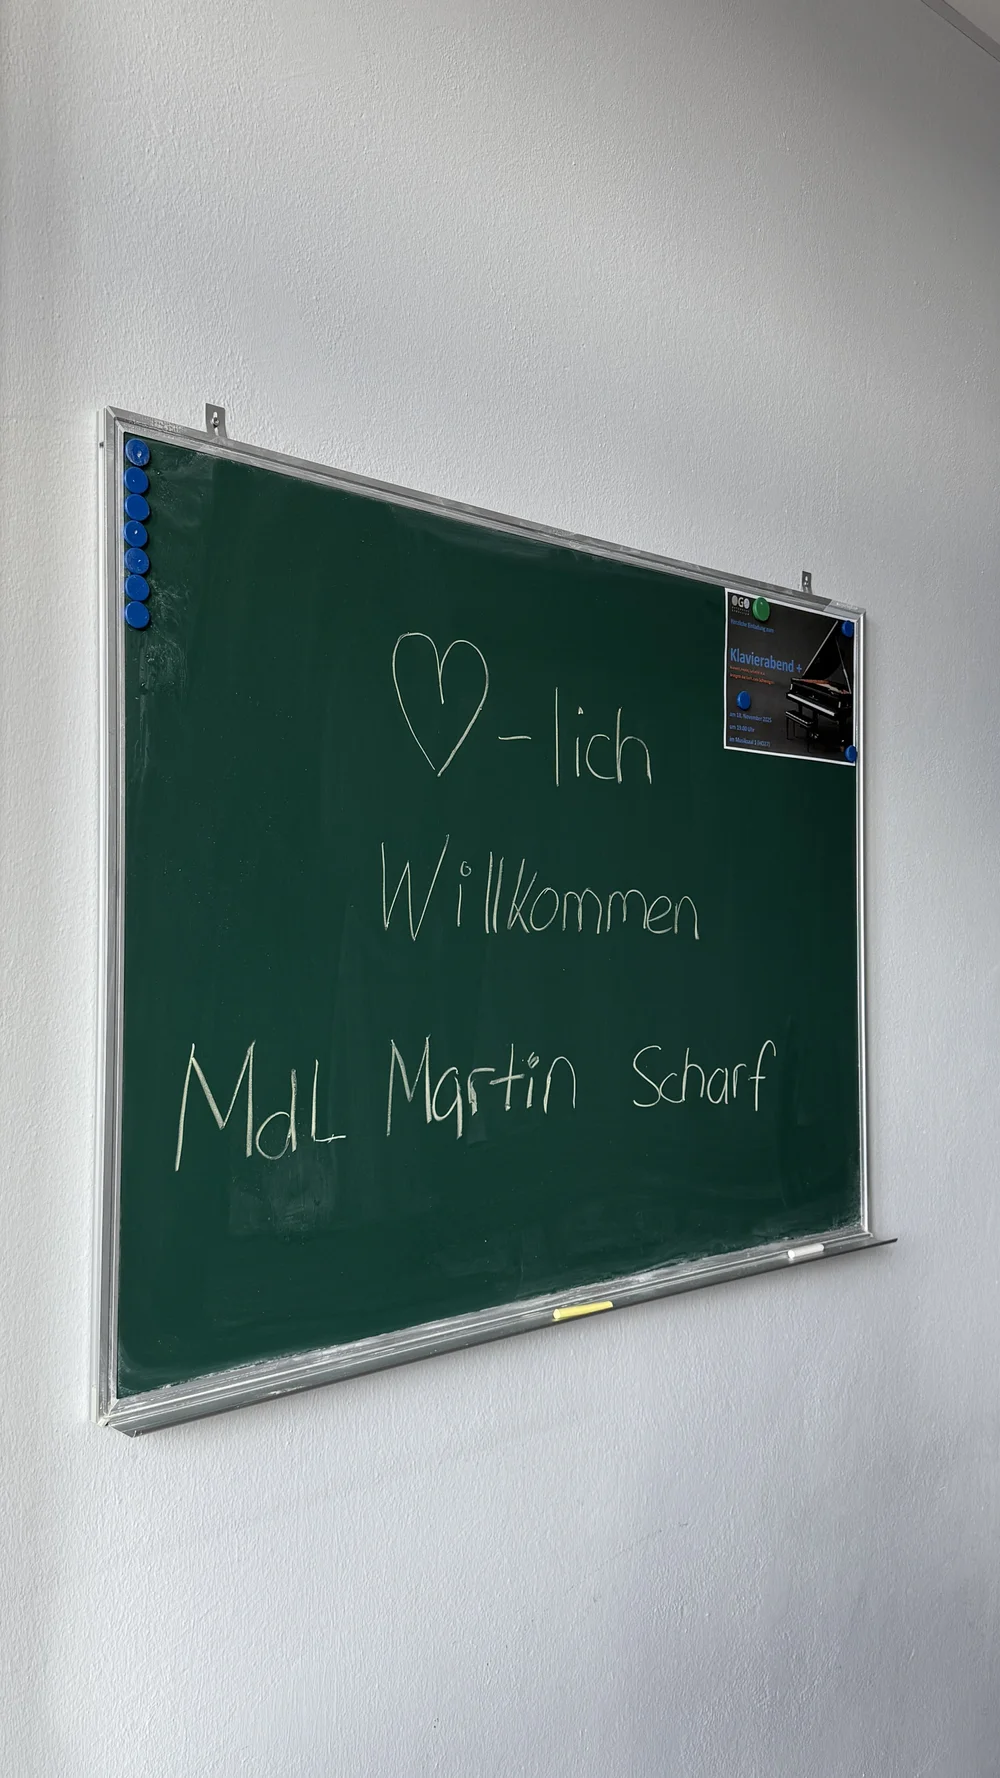 ♡-lich
Willkommen
MdL Martin Scharf
OGO
Herzliche Einladung zum
Klavierabend +
am 18. November 2025
um 19:00 Uhr
im Musiksaal 1 (H027)